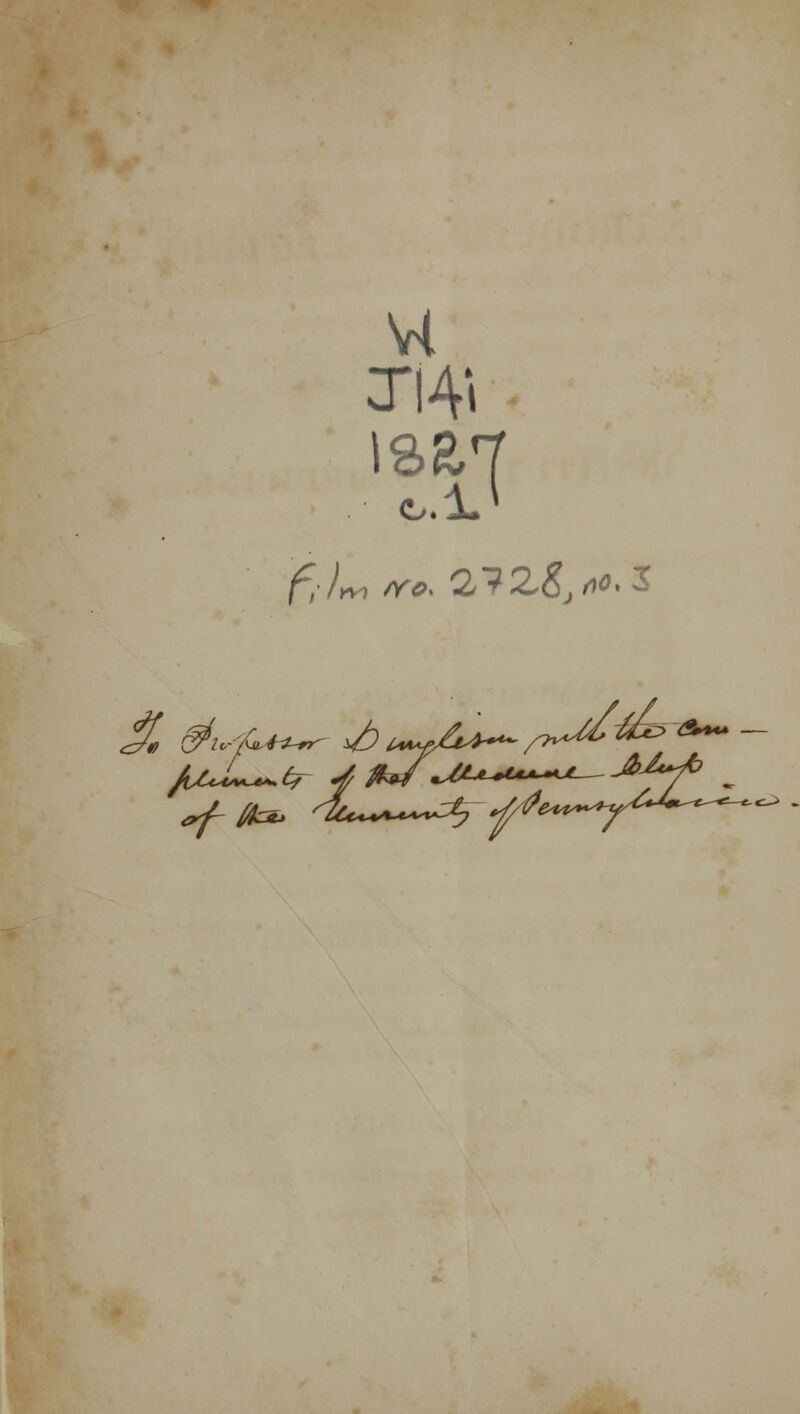 W
J14i
1827
c.1
film no. 2728, no. 3
To Professor with the Com-
pliments of the Medical
of the University of Pennsylvania.